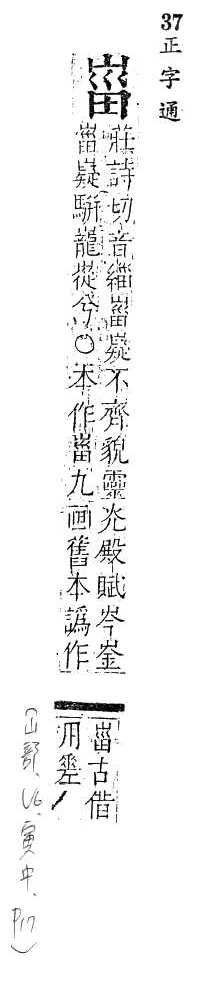 37
正字通
崰
莊詩切音緇崰嶷不齊貌靈光殿賦岑崟
崰嶷駢巃嵸兮○本作崰九画舊本譌作
崰古借
用
(山部、V6、寅中、P17)